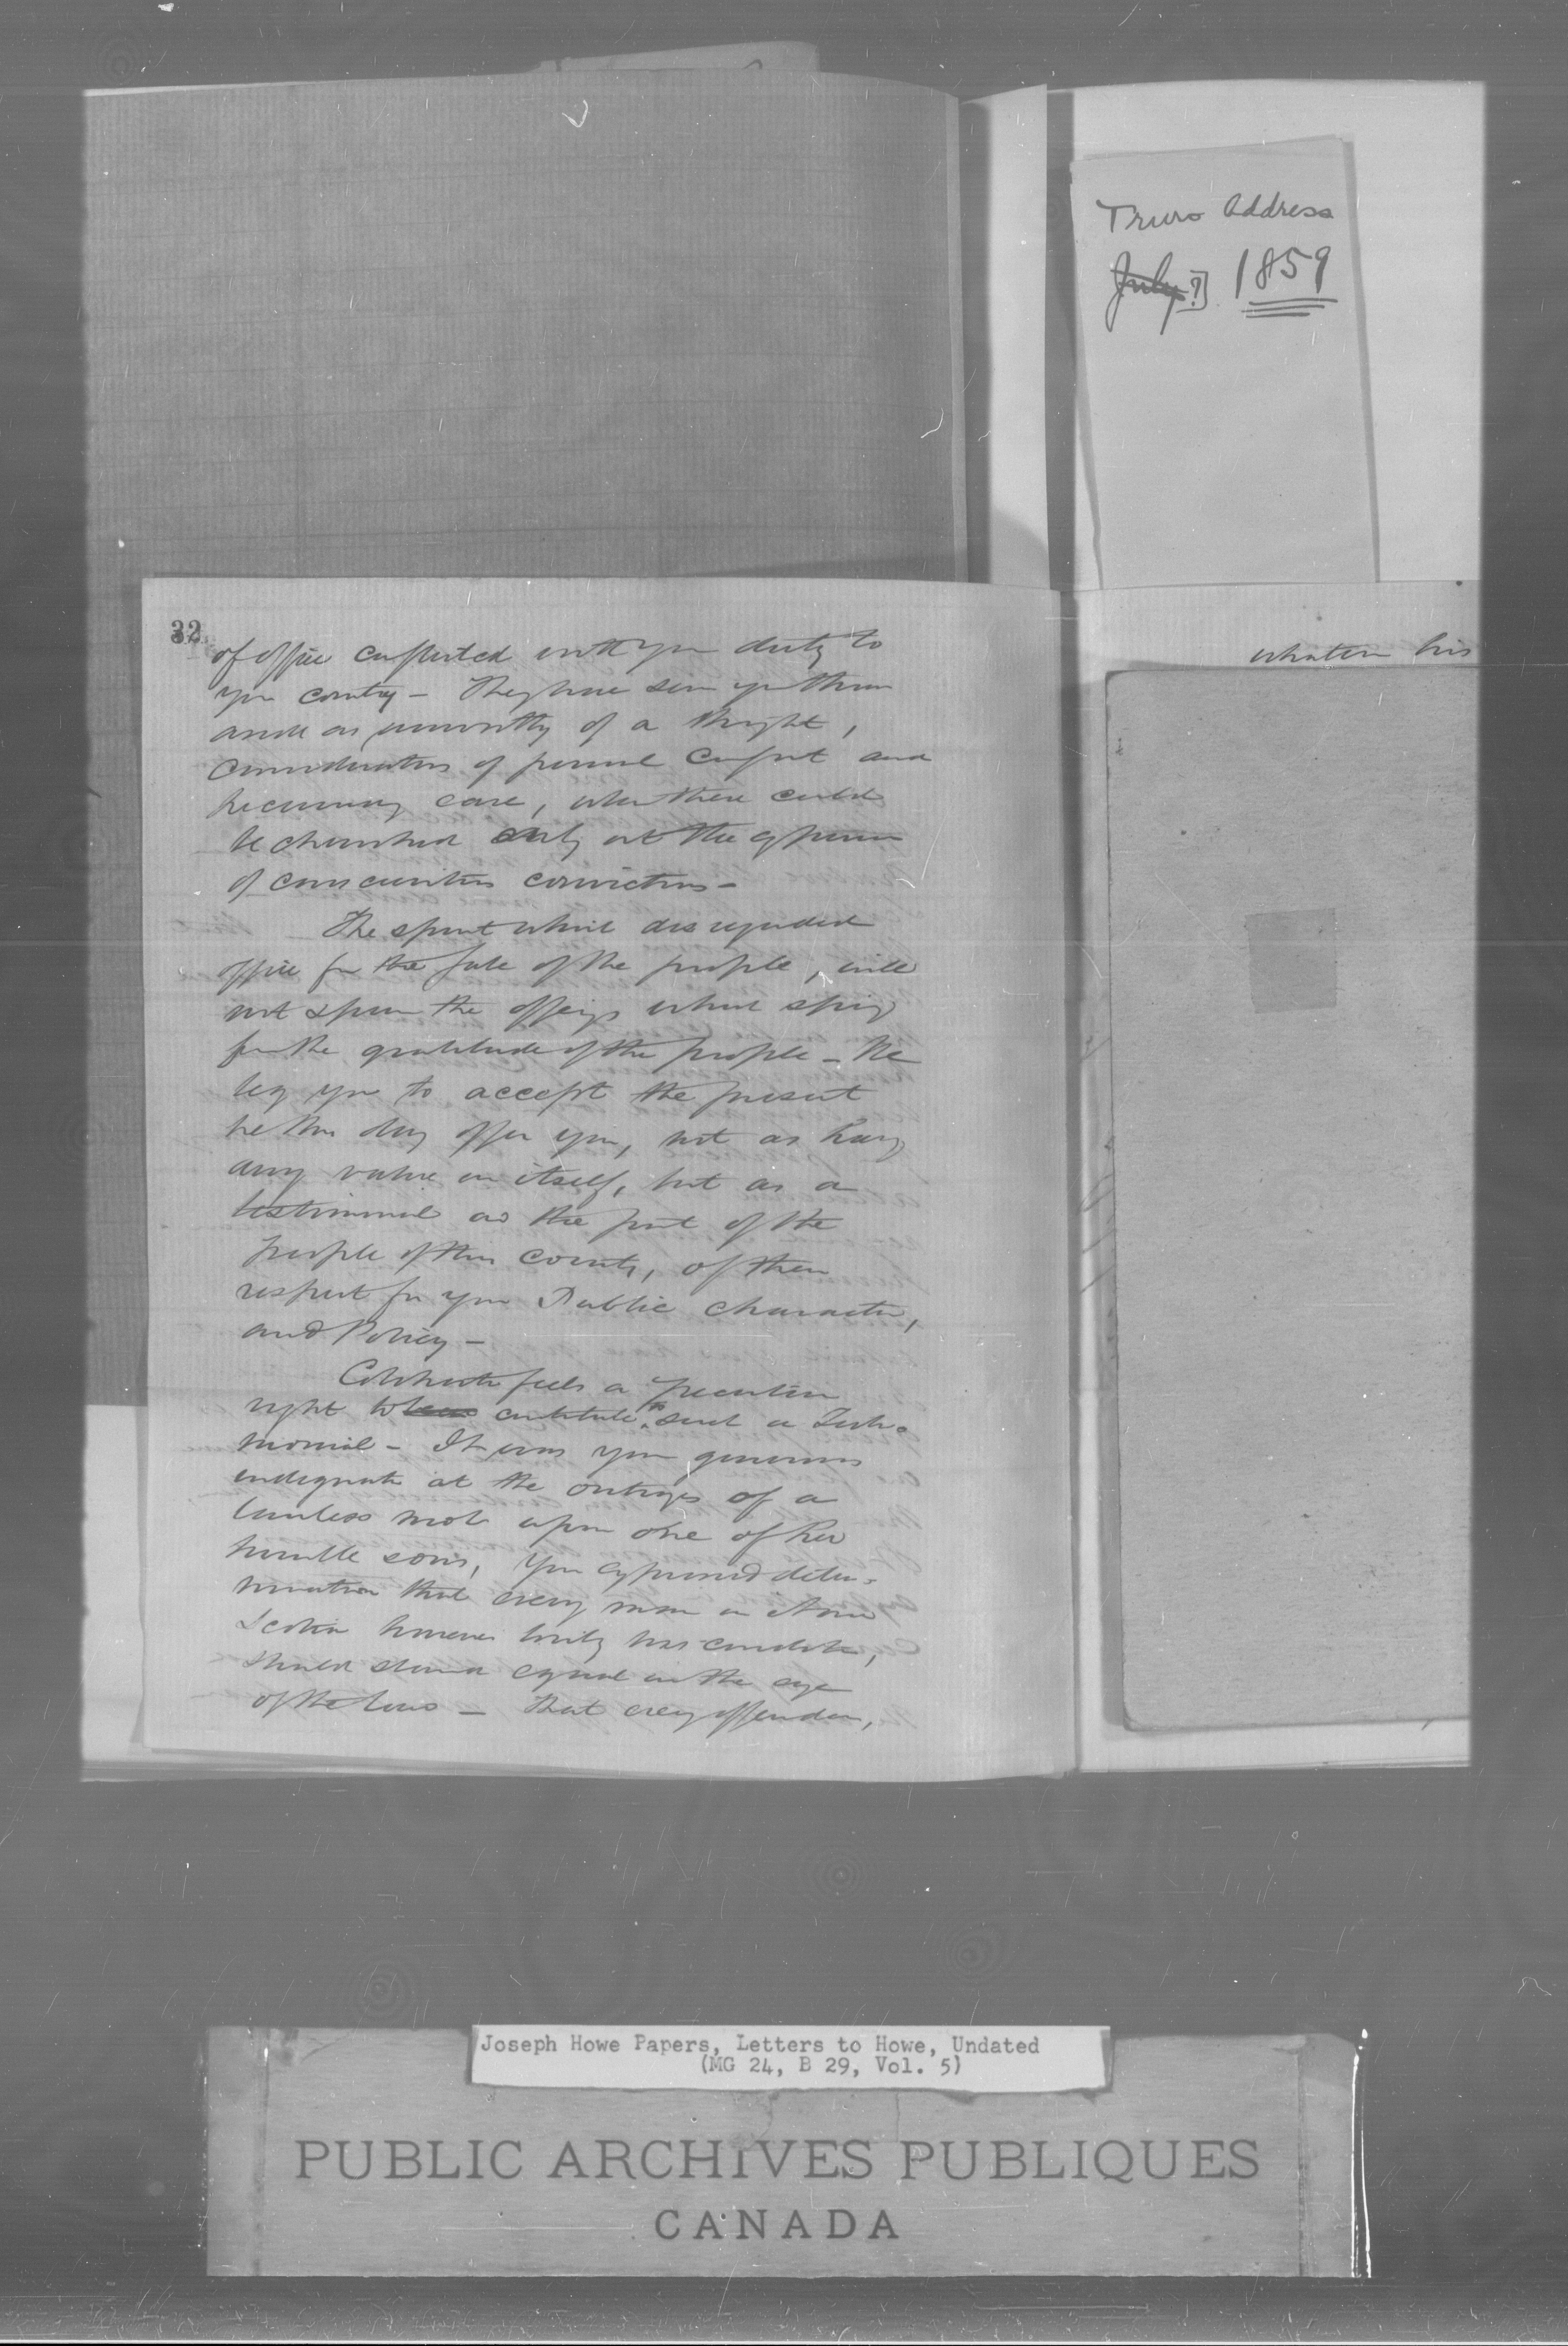 Truro Address
July [?] 1859
32
of office conflicted with your duty to
your country – They have seen you throw
aside as unworthy of a thought,
considerations of personal comfort and
pecuniary care, when these could
be cherished only at the expense
of conscientious convictions –
The spirit which disregarded
office for the sake of the people, will
not spurn the offerings which spring
from the gratitude of the people – We
beg you to accept the present
we this day offer you, not as having
any value in itself, but as a
testimonial on the part of the
people of this County, of their
respect for your Public character,
and Policy –
Colchester feels a peculiar
right to contribute to such a Testi-
monial – It was your generous
indignation at the outrages of a
lawless mob upon one of her
humble sons, your expressed deter-
mination that every man in Nova
Scotia however lowly his condition,
should stand equal in the eye
of the Law – That every offender,
whatever his
Joseph Howe Papers, Letters to Howe, Undated
(MG 24, B 29, Vol. 5)
PUBLIC ARCHIVES PUBLIQUES
CANADA